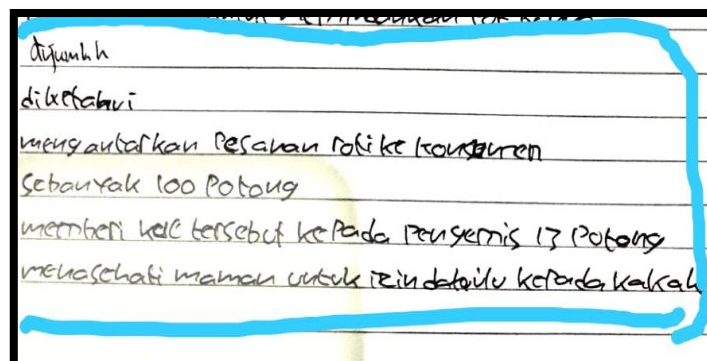 dijumlah
diketahui
mengantarkan Pesanan roti ke konsumen
Sebanyak 100 Potong
memberi kue tersebut kepada Pengemis 13 Potong
menasehati maman untuk izin dahulu kepada kakak